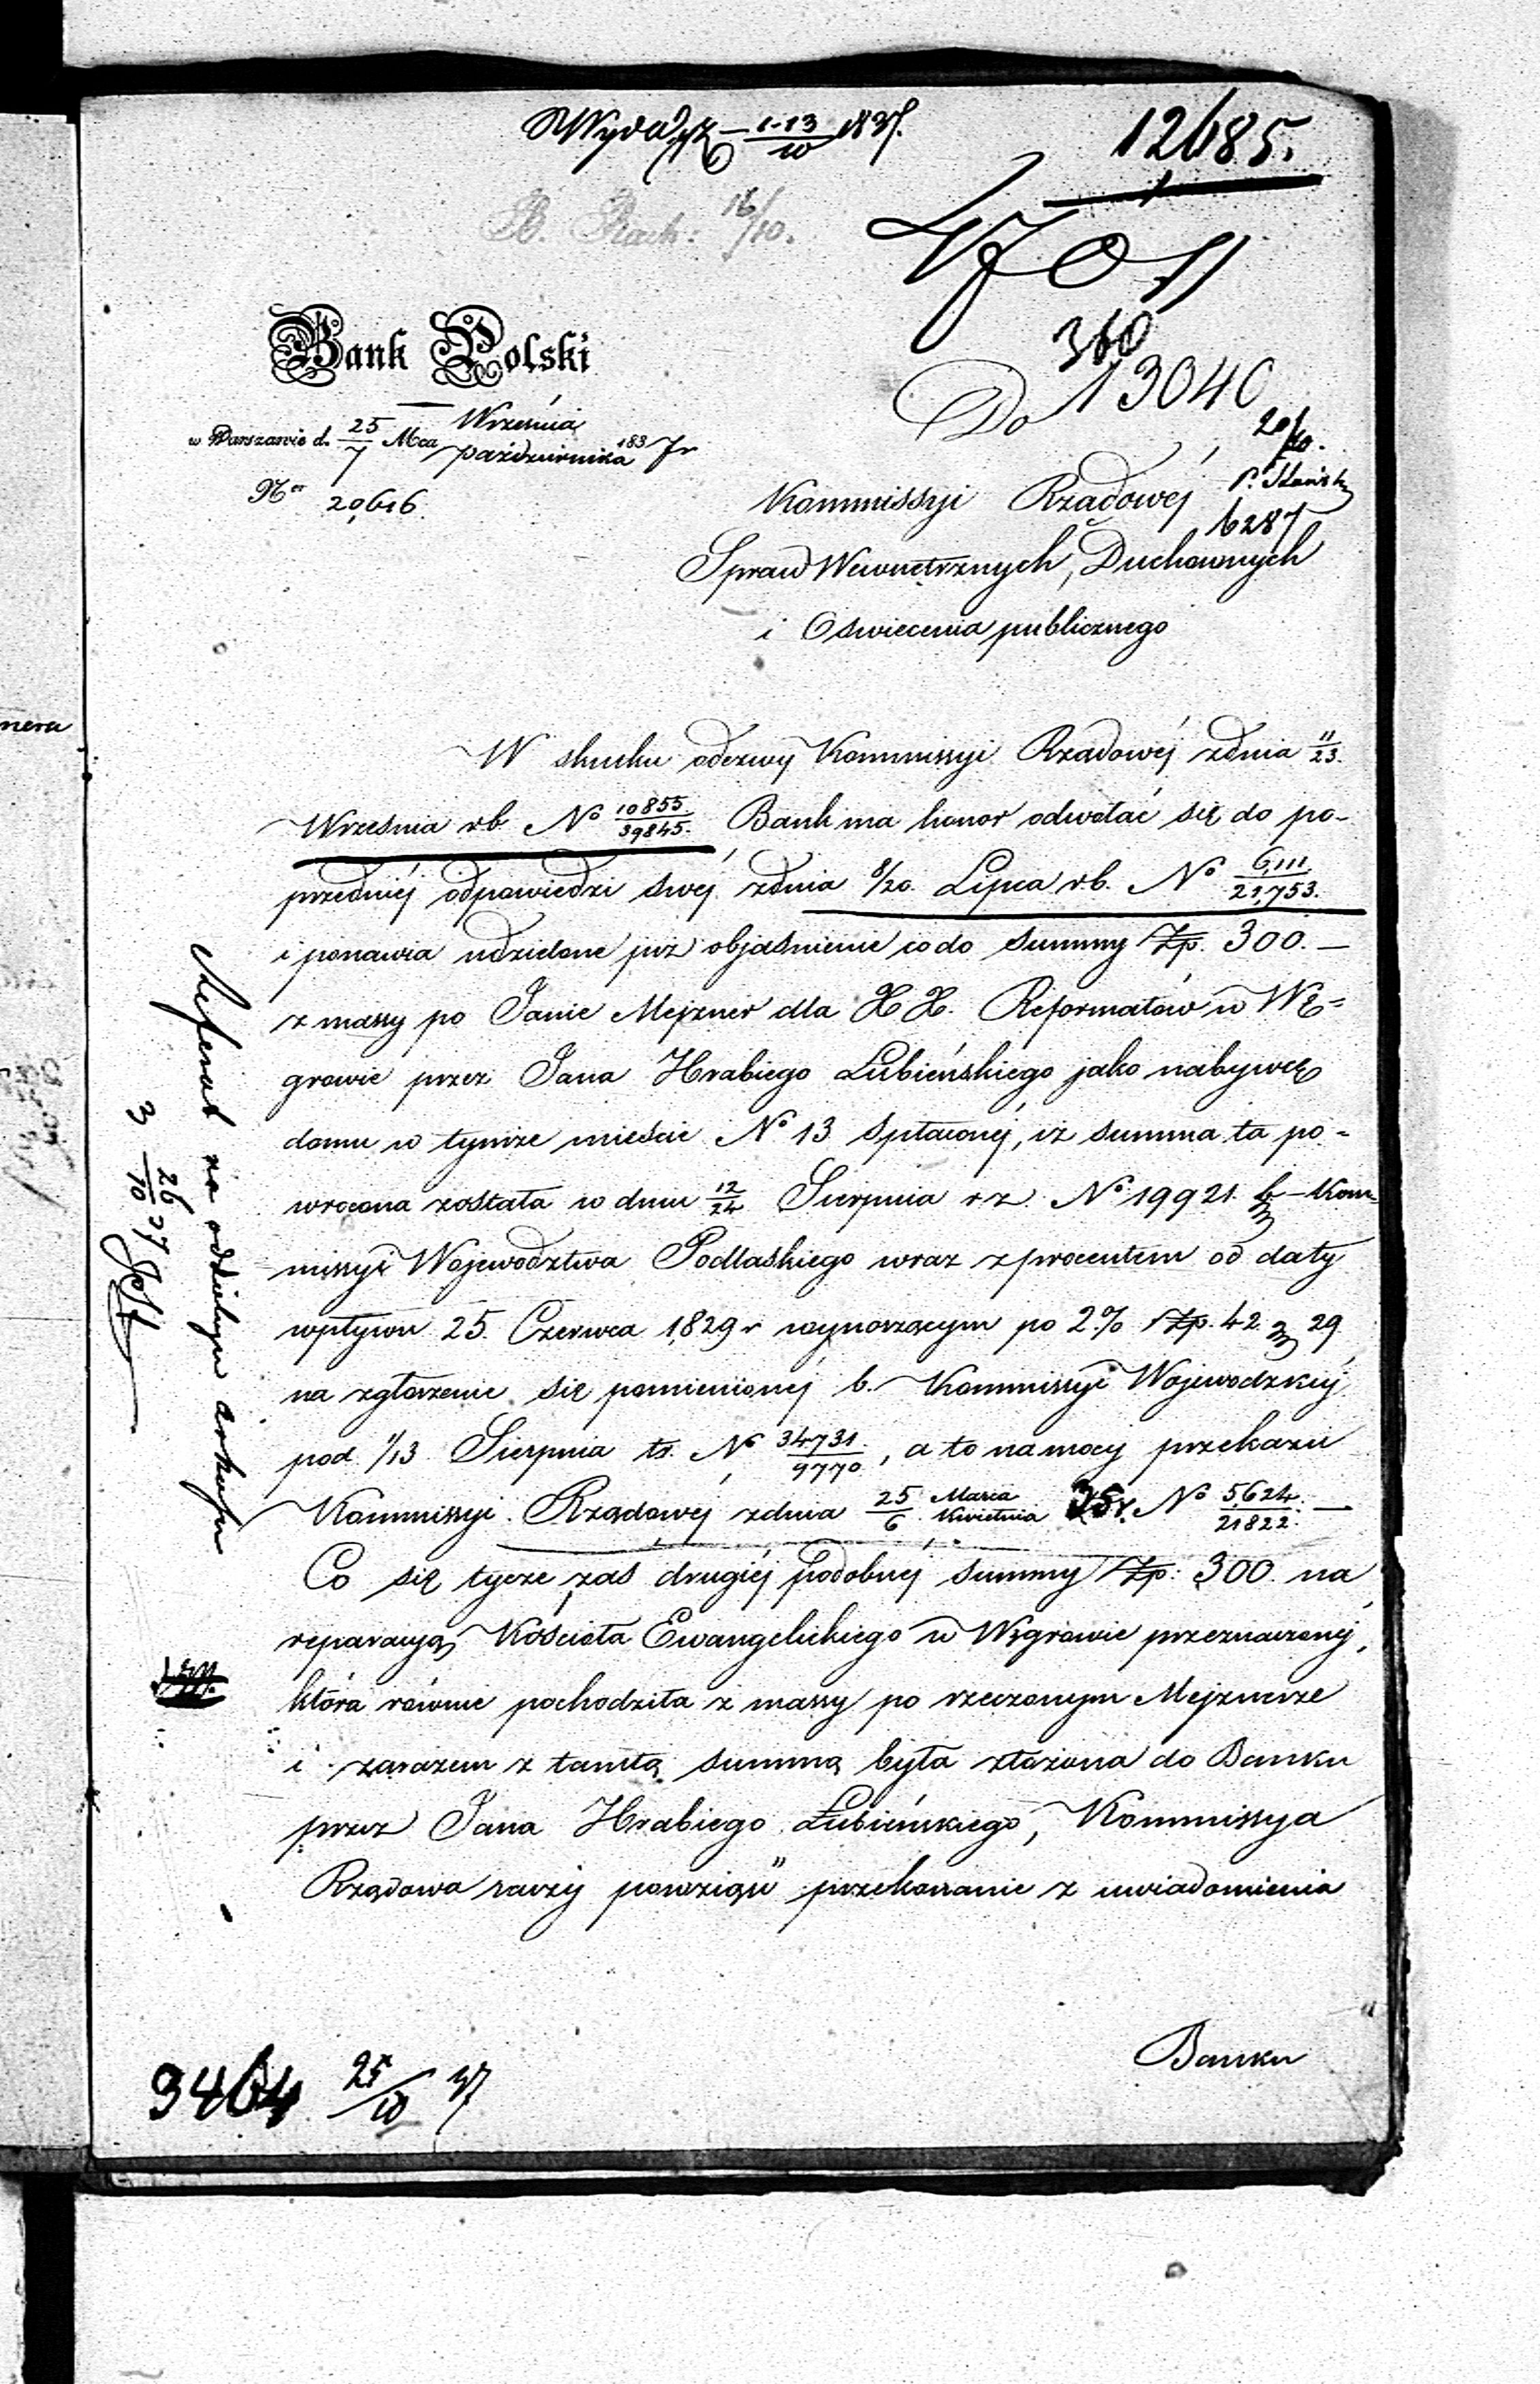 1-13/10 1837.
12685.
B. Rach: 16/10.
4701
360
13040
Bank Polski
Do
20/10.
w Warszawie d. 25/7 Mca Września/października 1837 r
Nr 20,616.
Kommissyi Rządowéj
6287
Spraw Wewnętrznych, Duchownych
i Oswiecenia publicznego
W skutku odezwy Kommissyi Rządowéj zdnia 11/23.
Września rb. No 10855/39845. Bank ma honor odwołać się do po-
przedniéj odpowiedzi swéj zdnia 8/20. Lipca rb. No 6,111/21,753.
i ponawia udzielone już objaśnienie co do summy Zp. 300. —
z massy po Janie Mejzner dla XX. Reformatów w Wę=
growie przez Jana Hrabiego Łubieńskiego jako nabywcę
domu w tymże mieście No 13 spłaconéj, iż summa ta po=
wrócona została w dniu 12/24 Sierpnia r z. No 19921. b. Kom=
missyi Województwa Podlaskiego wraz z procentem od daty
wpływu 25. Czerwca 1829 r wynoszącym po 2% Zp. 42 g 29
na zgłoszenie się pomienionéj b. Kommissyi Wojewodzkiéj
pod 1/13 Sierpnia ts. No 34731/9770, a to na mocy przekazu
Kommissyi Rządowéj zdnia 25/6 Marca/Kwietnia 35 r. No 5,624/21822. —
Co się tycze zaś drugiéj podobnéj summy Zp: 300. na
reparacyą Kościoła Ewangelickiego w Węgrowie przeznaczonéj,
która równie pochodziła z massy po rzeczonym Mejznerze
i zarazem z tamtą summą była złożona do Banku
przez Jana Hrabiego Łubieńskiego, Kommissya
Rządowa raczy powziąść przekonanie z uwiadomienia
Banku
Referat na oddzielnym arkuszu
3 26/10 37
9464 25/10 37